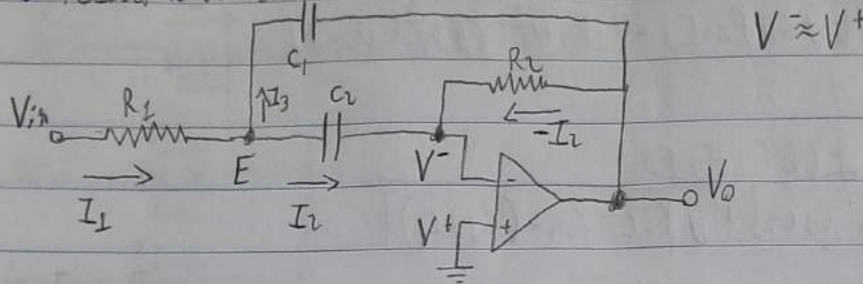 V⁻≈V⁺
C₁
R₂
Vin
R₁
↑I₃
C₂
-I₂
E
V⁻
-
I₁
I₂
V⁺
+
V₀